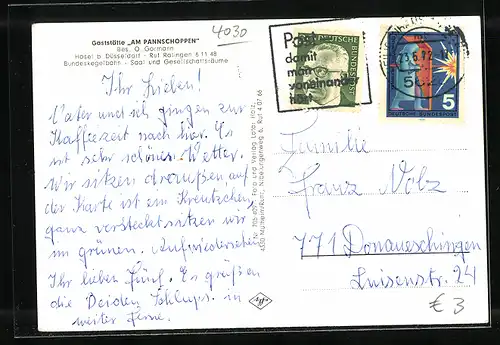 Gaststätte "AM PANNSCHOPPEN"
Bes. O. Gormann
Hösel b. Düsseldorf - Ruf Ratingen 6 11 48
Bundeskegelbahn - Saal und Gesellschaftsräume
4030
Ihr Lieben!
Vater und ich gingen zur
Kaffeezeit nach hier. Es
ist sehr schönes Wetter.
Wir sitzen draußen auf
der Karte ist ein Kreutzchen,
ganz versteckt sitzen wir
im grünen. Aufwiedersehen
Ihr lieben fünf. Es grüßen
die Beiden in
weiter ferne.
Foto und Verlag
4330 Mülheim-Ruhr, Nibelungenweg 6, Ruf 4 07 66
Post
damit
man
voneinander
hört
DEUTSCHE BUNDESPOST
23.6.72
5
DEUTSCHE BUNDESPOST
Familie
Franz Nölz
771 Donaueschingen
Luisenstr. 24
€ 3